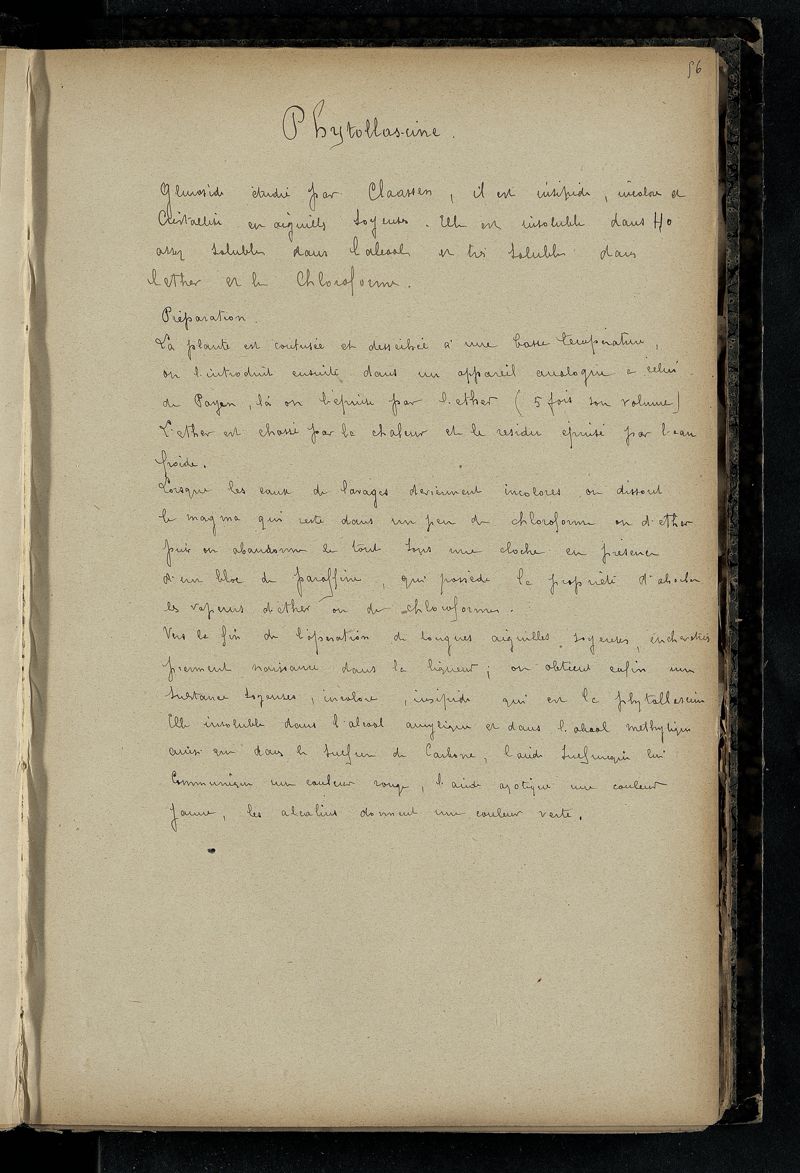 56
Phytollascine.
Glucoside étudié par Claassen, il est insipide, incolore et
Cristallisé en aiguilles soyeuses. Elle est insoluble dans Ho
assez solubles dans l'alcool et très solubles dans
l'ether et le Chloroforme.
Préparation.
La plante est contusée et desséchée à une basse température,
on l'introduit ensuite dans un appareil analogue à celui
de Payen, là on l'épuise par l'ether (5 fois son volume)
L'ether est chassé par la chaleur et le residu épuisé par l'eau
froide.
Lorsque les eaux de lavages deviennent incolores on dissout
le magma qui reste dans un peu de chloroforme ou d'ether
puis on abandonne le tout sous une cloche en présence
d'un bloc de paraffine, qui possède la propriété d'absorber
les vapeurs d'ether ou de chloroformes.
Vers la fin de l'opération de longues aiguilles soyeuses,
prennent naissance dans la liqueur; on obtient enfin une
substance soyeuses, incolore, insipide qui est la phytollascine
Elle insoluble dans l'alcool amylique et dans l'alcool méthylique
ainsi que dans le sulfure de Carbone, l'acide sulfurique lui
Communique une couleur rouge, l'acide azotique une couleur
Jaune, les alcalins donnent une couleur verte.